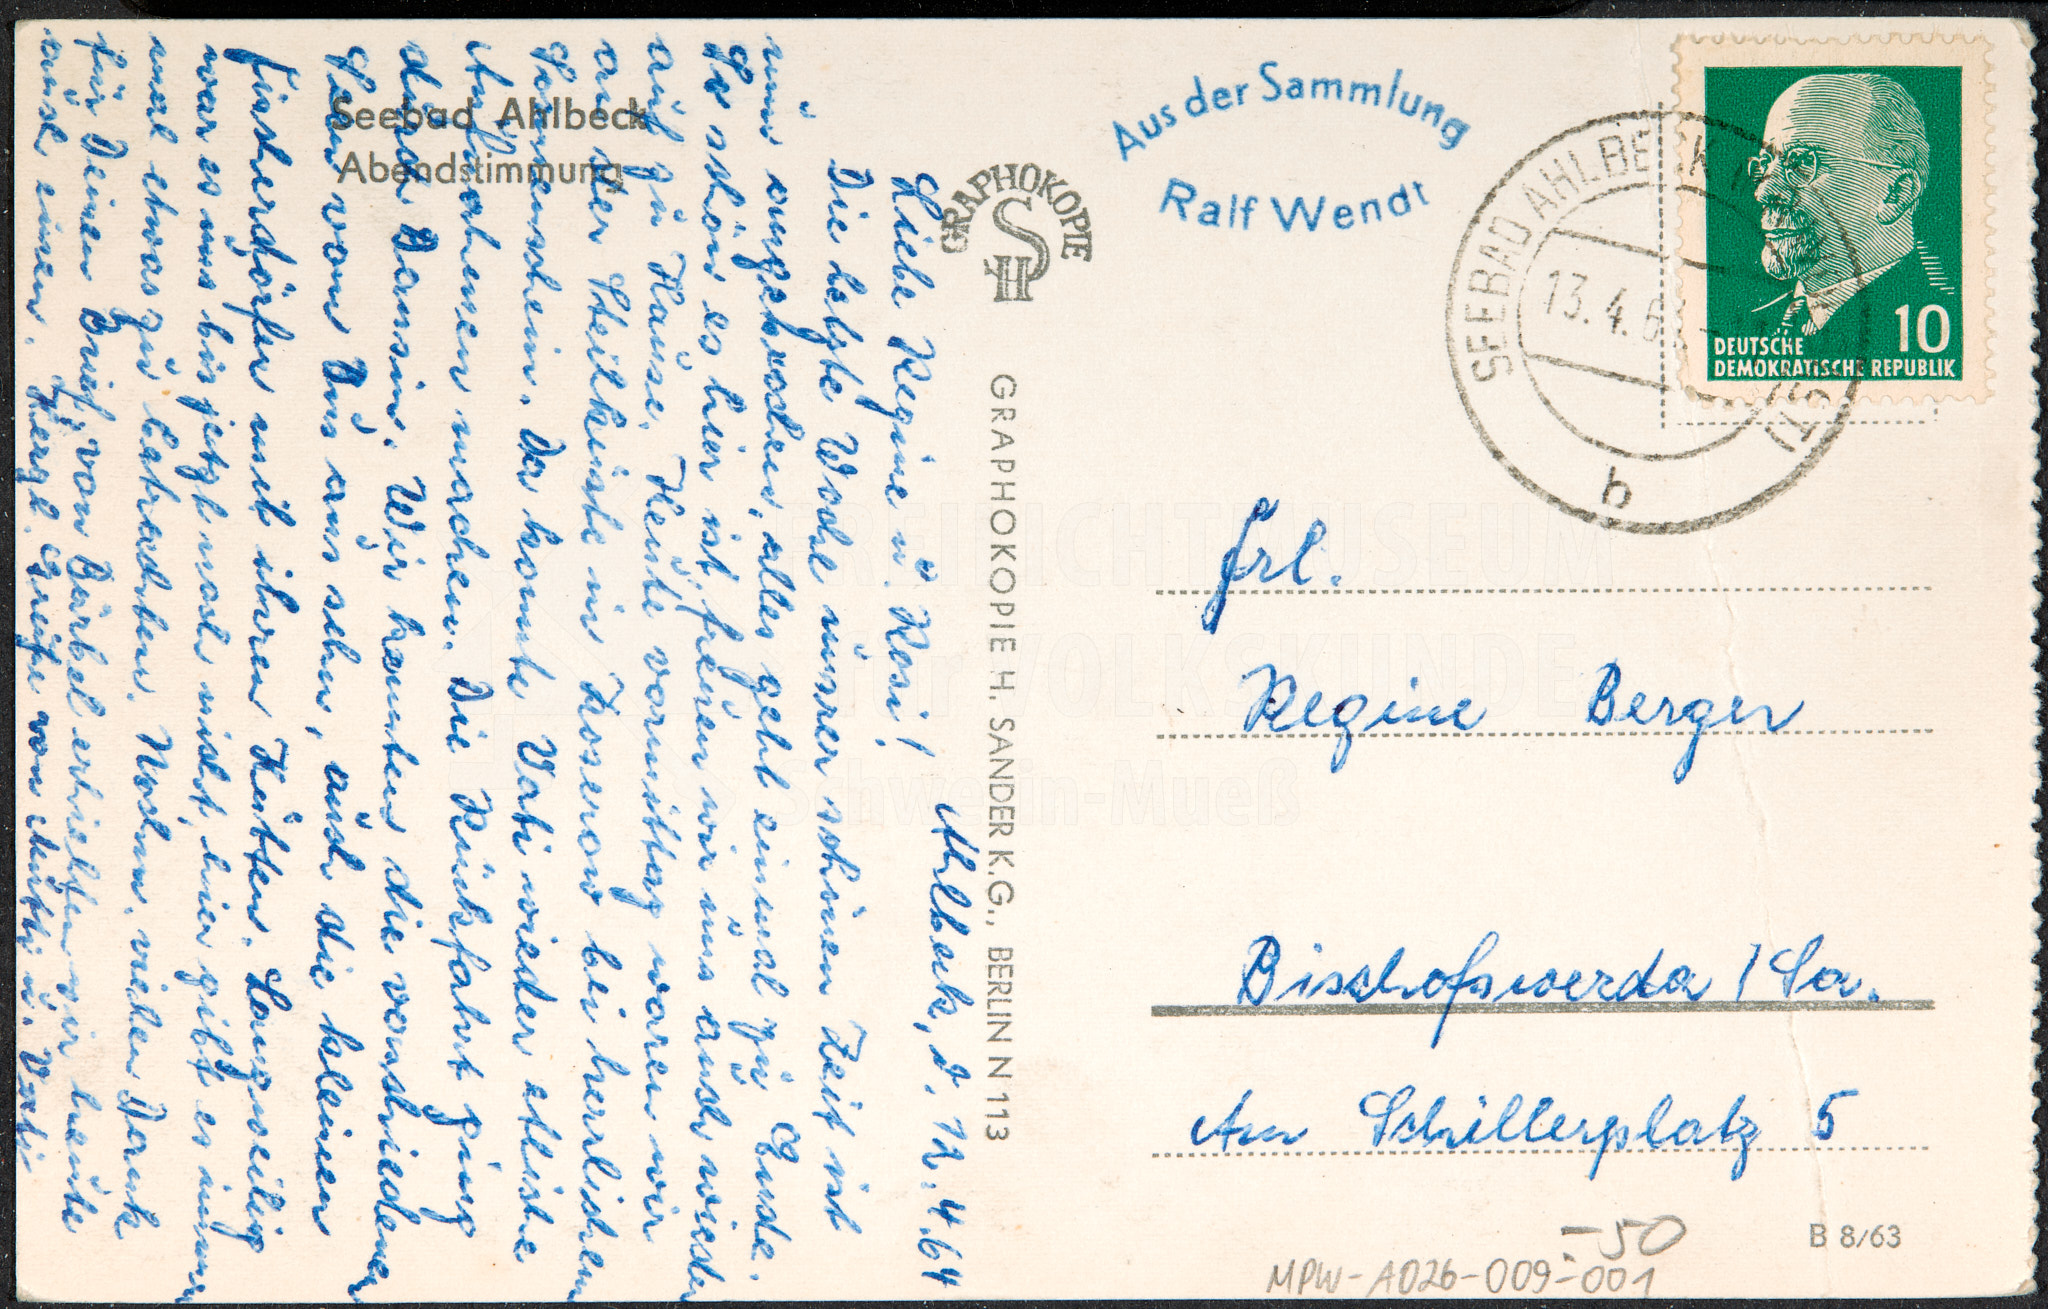 Seebad Ahlbeck
Abendstimmung
Ahlbeck, d. 12.4.64
Liebe Regine u. Rosi!
Die letzte Woche unsrer schönen Zeit ist
nun angebrochen, alles geht einmal zu Ende.
So schön es hier ist, freuen wir uns auch wieder
auf zu Hause. Heute vormittag waren wir
an der Steilküste in Koserow bei herrlichem
Sonnenschein. Da konnte Vati wieder etliche
Aufnahmen machen. Die Rückfahrt ging
durch Bansin. Wir konnten die verschiedenen
Seen vom Bus aus sehen, auch die kleinen
Fischerdörfer mit ihren Hütten. Langweilig
war es uns bis jetzt noch nicht, hier gibt es immer
mal etwas zu betrachten. Nochm. vielen Dank
für Deinen Brief, von Bärbel erhielten wir heute
auch einen. Herzl. Grüße von Mutti u. Vati
GRAPHOKOPIE
SH
GRAPHOKOPIE H. SANDER K.G., BERLIN N 113
Aus der Sammlung
Ralf Wendt
SEEBAD AHLBECK
13.4.6
b
10
DEUTSCHE
DEMOKRATISCHE REPUBLIK
FREILICHTMUSEUM
für VOLKSKUNDE
Schwerin-Mueß
Frl.
Regine Berger
Bischofswerda / Sa.
Am Schillerplatz 5
-50
B 8/63
MPW-A026-009-001